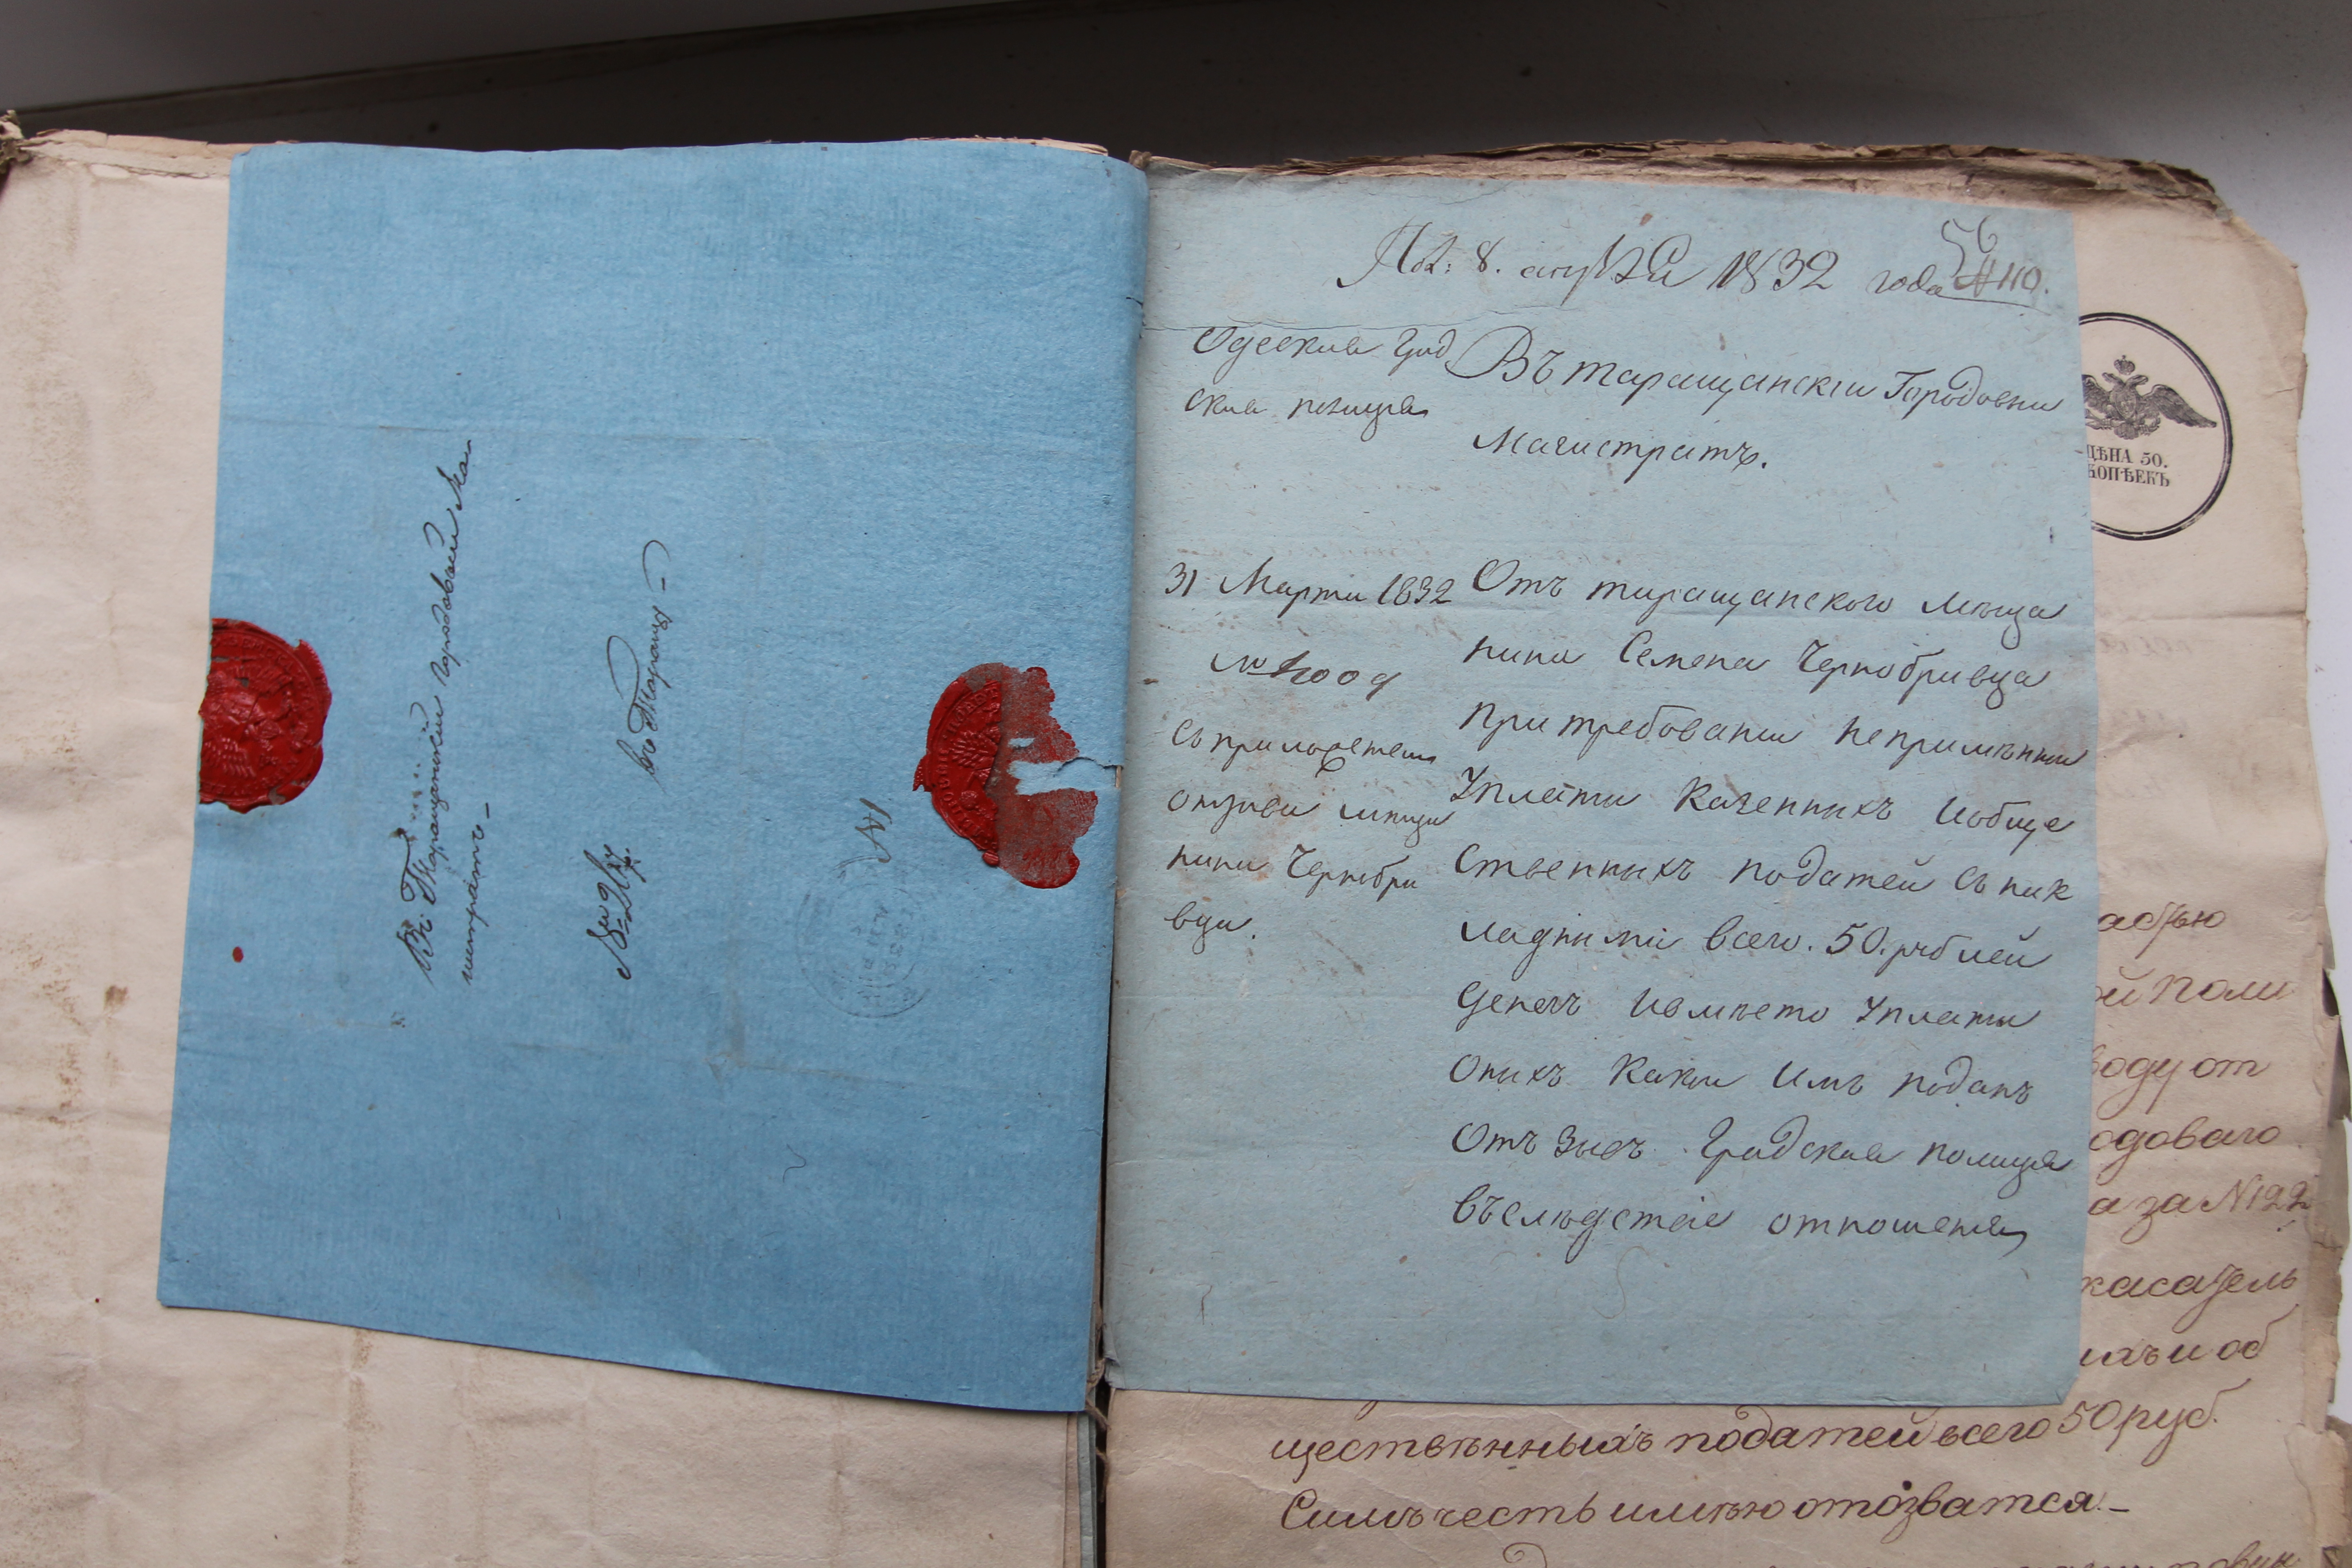 Въ Таращанский городовый Маги
стратъ.–
въ Таращу –
№1
56
Пол: 8. апреля 1832 года №110.
Одеская град
ская полиция
Въ таращанскии Городовии
Магистратъ.
31 Марта 1832
№ 4009
съ приложением
отзыва мещи
нина Чернобри
вци.
Отъ таращанского мѣща
нина Семена Чернобривца
при требовании непримѣннои
Уплати Казеннихъ Иобще
ственнихъ податей съ нак
ладними всего. 50. рублей
денегъ Ивмѣсто Уплати
Онихъ Какои Имъ поданъ
Отъ зывъ Градская полиция
въслѣдствіе отношения
ЦѢНА 50.
КОПѢЕКЪ
ой Поли
воду от
одоваго
а за N122
касатель
ихъ и об
щественныхъ податей всего 50 руб.
Симъ честь имѣю отозватся.–